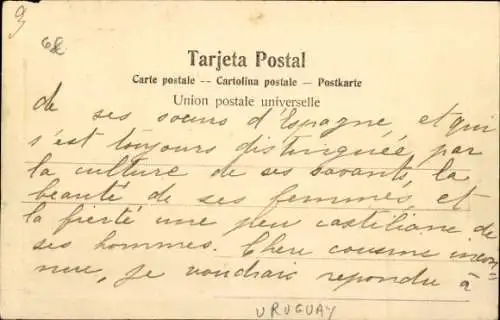 9
68
Tarjeta Postal
Carte postale -- Cartolina postale -- Postkarte
Union postale universelle
de ses soeurs d'Espagne, et qui
s'est toujours distinguée par
la culture de ses savants, la
beauté de ses femmes, et
la fierté une peu castiliane de
ses hommes. Chere cousine incon-
nue, je voudrais repondre à
URUGUAY